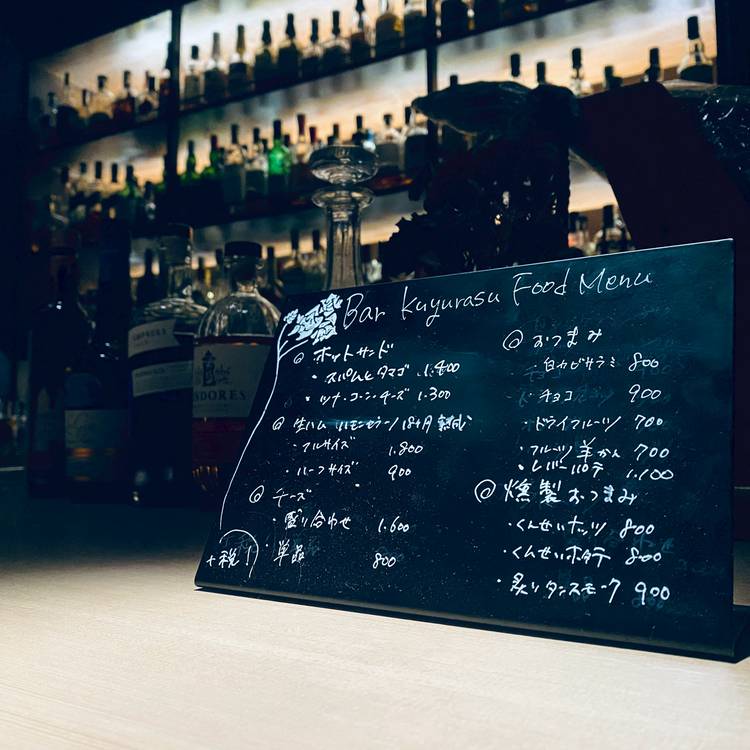 Bar Kuyurasu Food Menu
@ ホットサンド
・スパムとタマゴ 1.400
・ツナ・コーン・チーズ 1.300
@ 生ハム ハモンセラーノ 18ヶ月熟成
・フルサイズ 1.800
・ハーフサイズ 900
@ チーズ
・盛り合わせ 1.600
・単品 800
+税!
@ おつまみ
・白カビサラミ 800
・チョコ 900
・ドライフルーツ 700
・フルーツ羊かん 700
・レバーパテ 1.100
@ 燻製おつまみ
・くんせいナッツ 800
・くんせいホタテ 800
・炙りタンスモーク 900
DORES